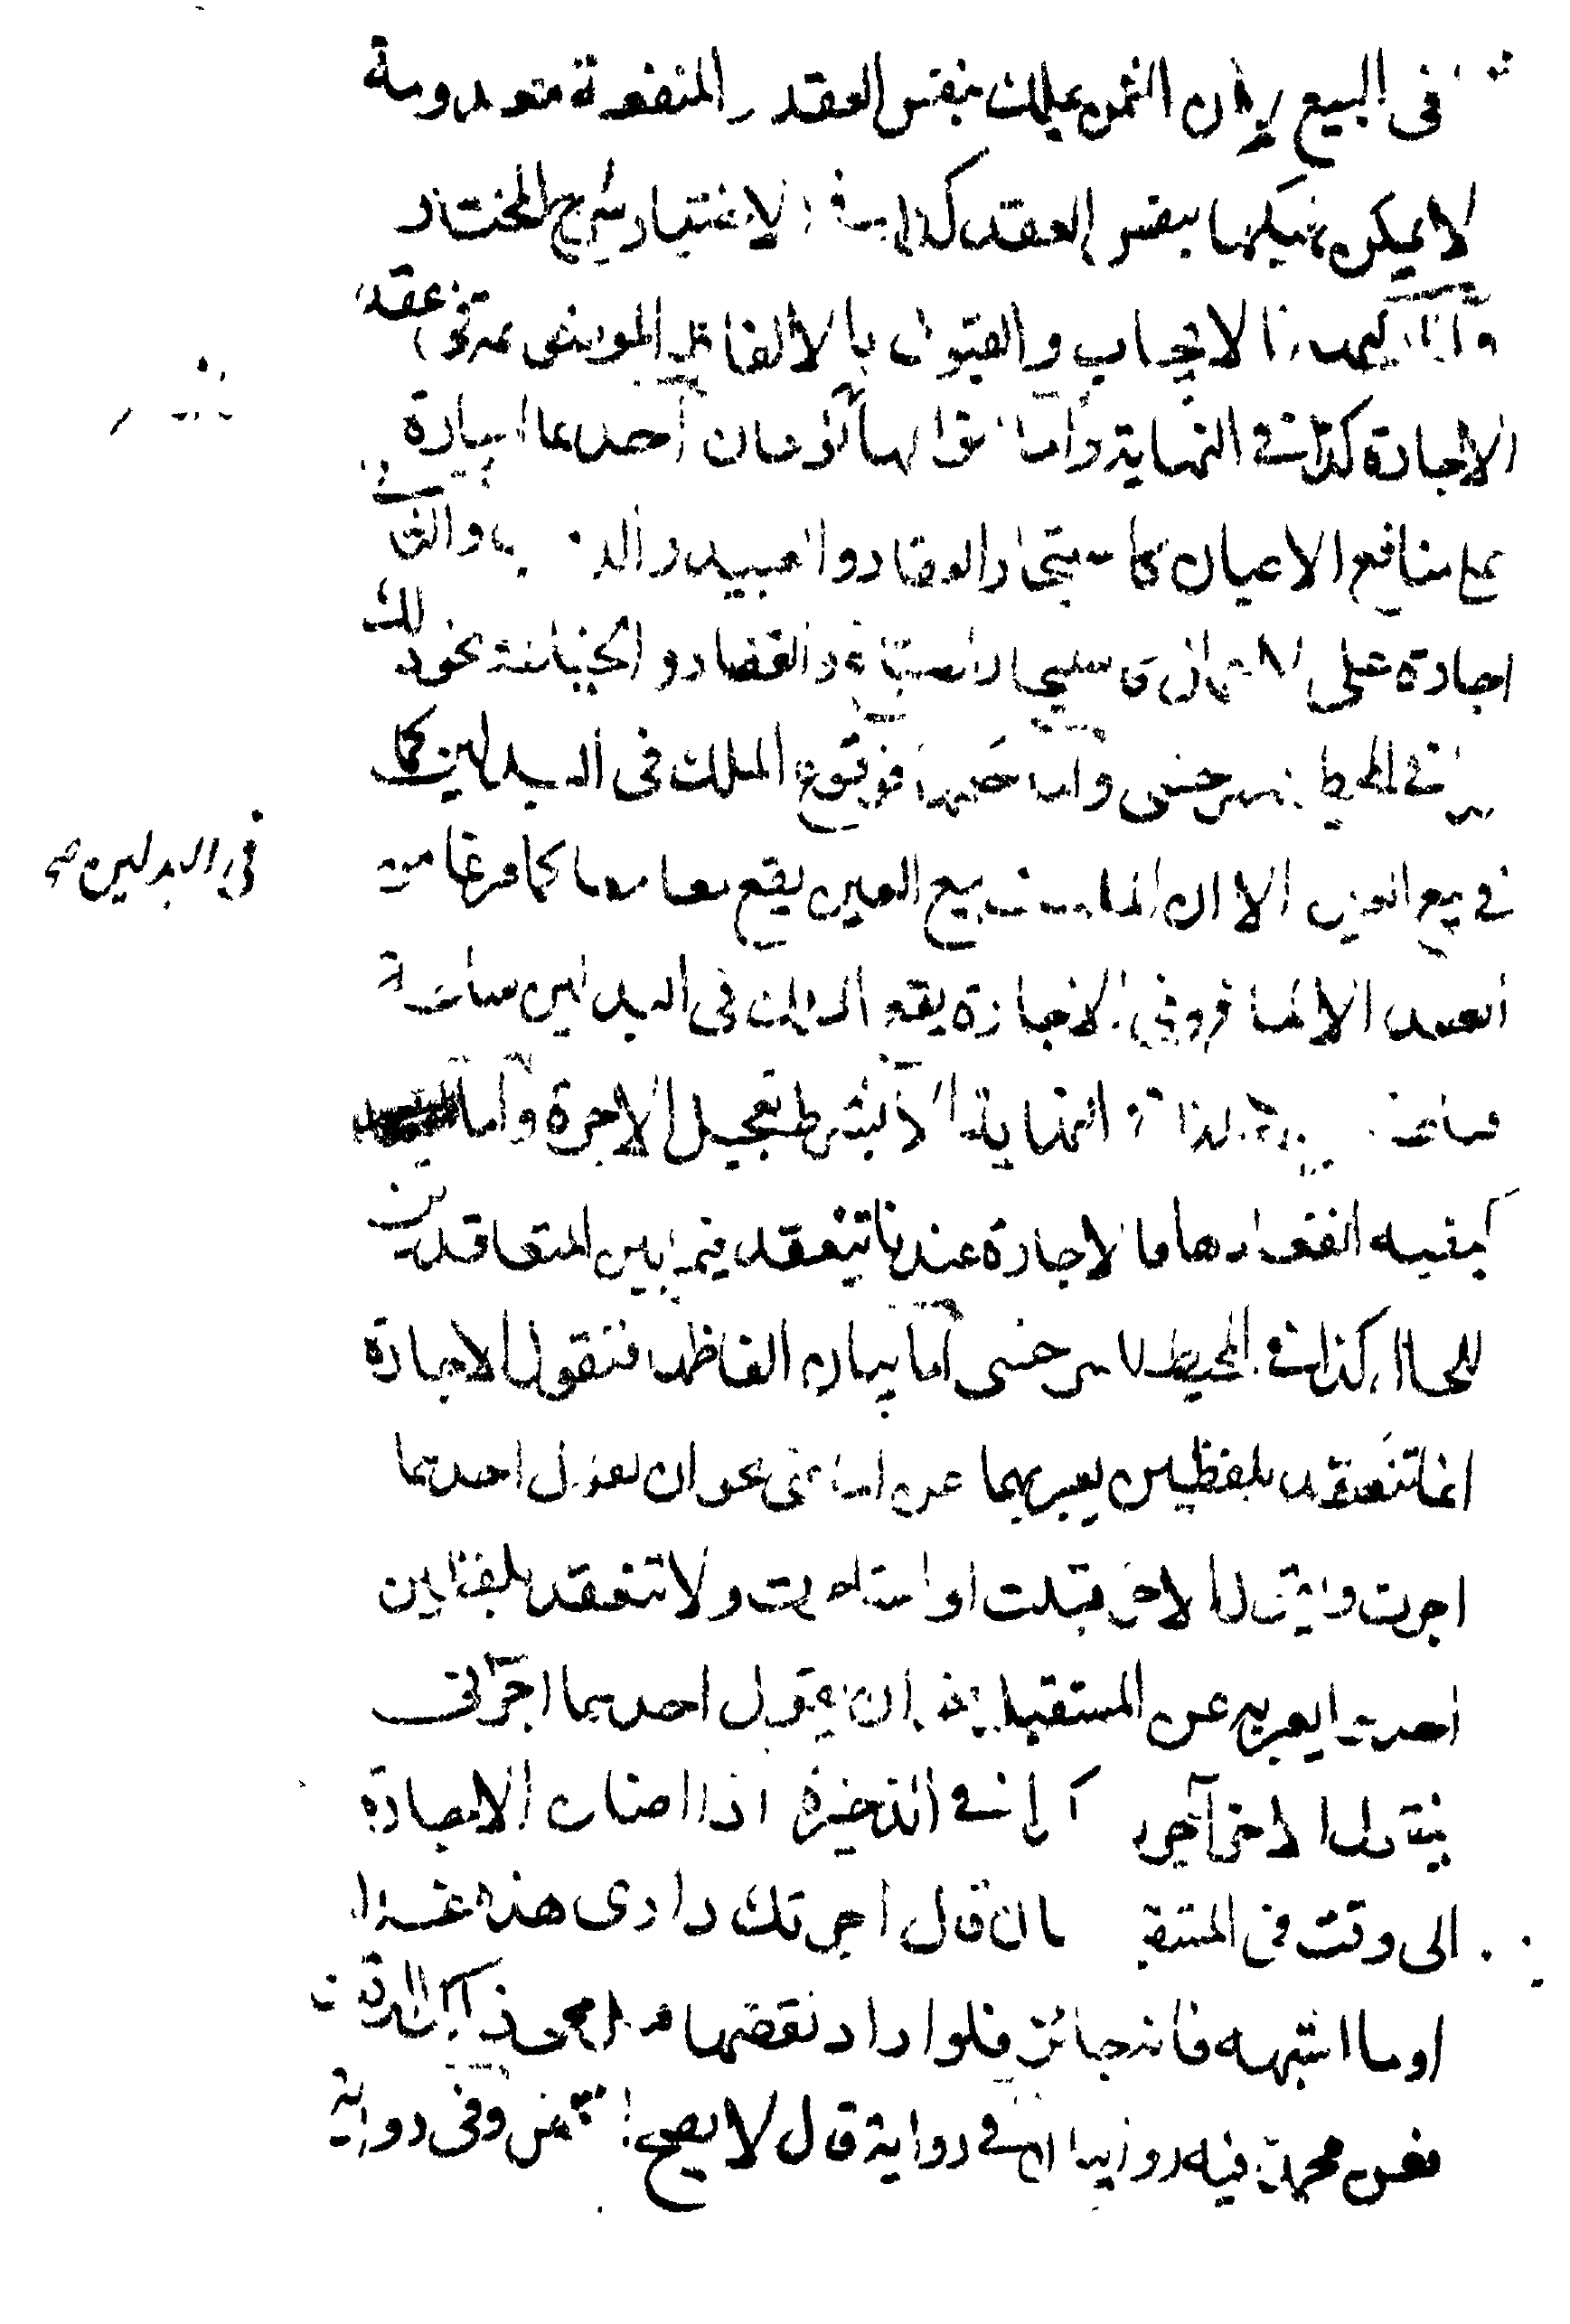 في البيع لان الثمن يملك بنفس العقد والمنفعة معدومة
لا يمكن تمليكها بنفس العقد كذا في الاختيار شرح المختار
واما ركنها الايجاب والقبول بالالفاظ الموضوعة في عقد
الاجارة كذا في النهاية واما انواعها نوعان احدهما اجارة
على منافع الاعيان كاستيجار العقار والعبيد والدواب والثاني
اجارة على الاعمال كاستيجار القصار والخياط ونحو ذلك
في المحيط السرخسي واما حكمها فوقوع الملك في البدلين كما
في البدلين صح
في بيع العين الا ان الملك في بيع العين يقع معا كما فرغا من
العقد الا انها وفي الاجارة يقع الملك في البدلين ساعة
فساعة النهاية الا بشرط تعجيل الاجرة واما
كيفية انعقادها فالاجارة عندنا تنعقد فيما بين المتعاقدين
للحال كذا في المحيط للسرخسي اما بيان الفاظه فنقول الاجارة
انما تنعقد بلفظين يعبر بهما عن الماضي نحو ان يقول احدهما
اجرت ويقول الاخر قبلت او استاجرت ولا تنعقد بلفظين
احدهما يعبر به عن المستقبل نحو ان يقول احدهما اجرني
فيقول الاخر آجرت كذا في الذخيرة اذا اضاف الاجارة
الى وقت في المستقبل بان قال اجرتك داري هذه غدا
او ما اشبهه فانه جائز فلو اراد نقضها قبل مجئ ذلك الوقت
فعن محمد فيه روايتان في رواية قال لا يصح النقض وفي رواية